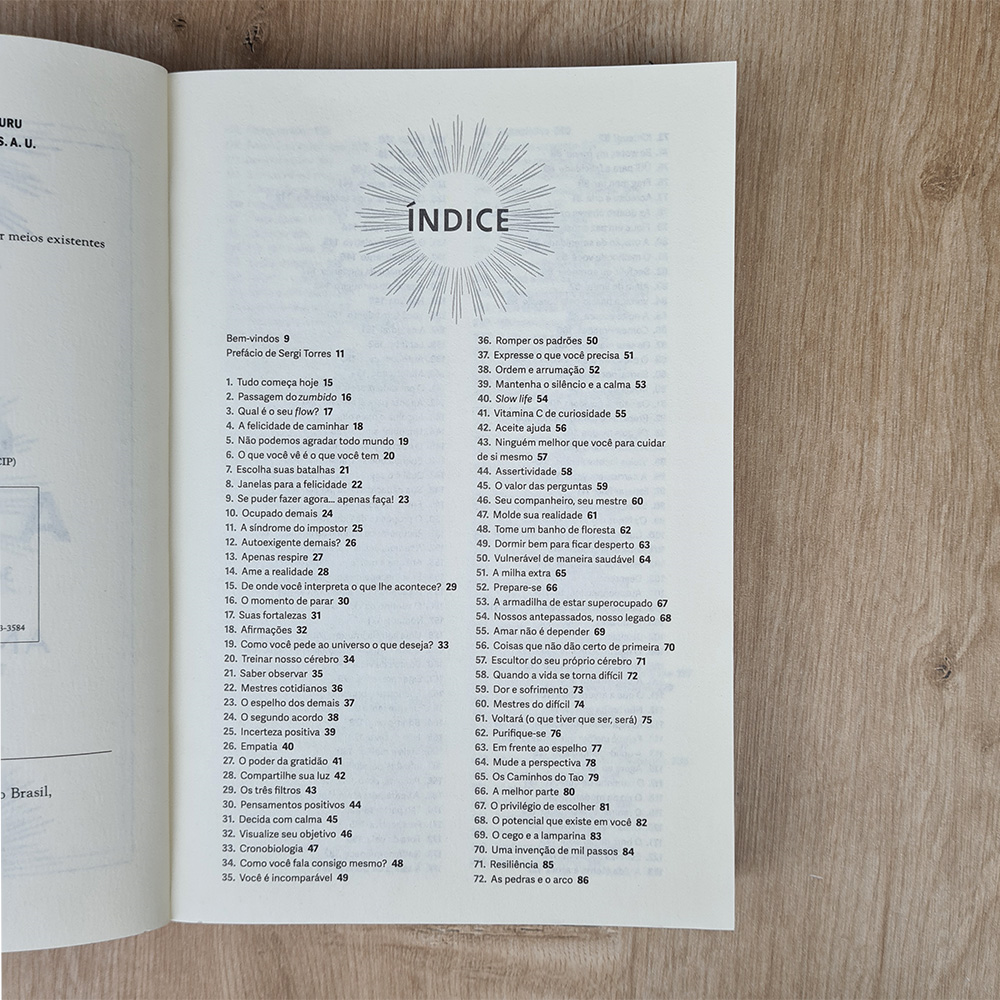 URU
S. A. U.
r meios existentes
CIP)
3-3584
o Brasil,
ÍNDICE
Bem-vindos 9
Prefácio de Sergi Torres 11
1. Tudo começa hoje 15
2. Passagem do zumbido 16
3. Qual é o seu flow? 17
4. A felicidade de caminhar 18
5. Não podemos agradar todo mundo 19
6. O que você vê é o que você tem 20
7. Escolha suas batalhas 21
8. Janelas para a felicidade 22
9. Se puder fazer agora... apenas faça! 23
10. Ocupado demais 24
11. A síndrome do impostor 25
12. Autoexigente demais? 26
13. Apenas respire 27
14. Ame a realidade 28
15. De onde você interpreta o que lhe acontece? 29
16. O momento de parar 30
17. Suas fortalezas 31
18. Afirmações 32
19. Como você pede ao universo o que deseja? 33
20. Treinar nosso cérebro 34
21. Saber observar 35
22. Mestres cotidianos 36
23. O espelho dos demais 37
24. O segundo acordo 38
25. Incerteza positiva 39
26. Empatia 40
27. O poder da gratidão 41
28. Compartilhe sua luz 42
29. Os três filtros 43
30. Pensamentos positivos 44
31. Decida com calma 45
32. Visualize seu objetivo 46
33. Cronobiologia 47
34. Como você fala consigo mesmo? 48
35. Você é incomparável 49
36. Romper os padrões 50
37. Expresse o que você precisa 51
38. Ordem e arrumação 52
39. Mantenha o silêncio e a calma 53
40. Slow life 54
41. Vitamina C de curiosidade 55
42. Aceite ajuda 56
43. Ninguém melhor que você para cuidar
de si mesmo 57
44. Assertividade 58
45. O valor das perguntas 59
46. Seu companheiro, seu mestre 60
47. Molde sua realidade 61
48. Tome um banho de floresta 62
49. Dormir bem para ficar desperto 63
50. Vulnerável de maneira saudável 64
51. A milha extra 65
52. Prepare-se 66
53. A armadilha de estar superocupado 67
54. Nossos antepassados, nosso legado 68
55. Amar não é depender 69
56. Coisas que não dão certo de primeira 70
57. Escultor do seu próprio cérebro 71
58. Quando a vida se torna difícil 72
59. Dor e sofrimento 73
60. Mestres do difícil 74
61. Voltará (o que tiver que ser, será) 75
62. Purifique-se 76
63. Em frente ao espelho 77
64. Mude a perspectiva 78
65. Os Caminhos do Tao 79
66. A melhor parte 80
67. O privilégio de escolher 81
68. O potencial que existe em você 82
69. O cego e a lamparina 83
70. Uma invenção de mil passos 84
71. Resiliência 85
72. As pedras e o arco 86